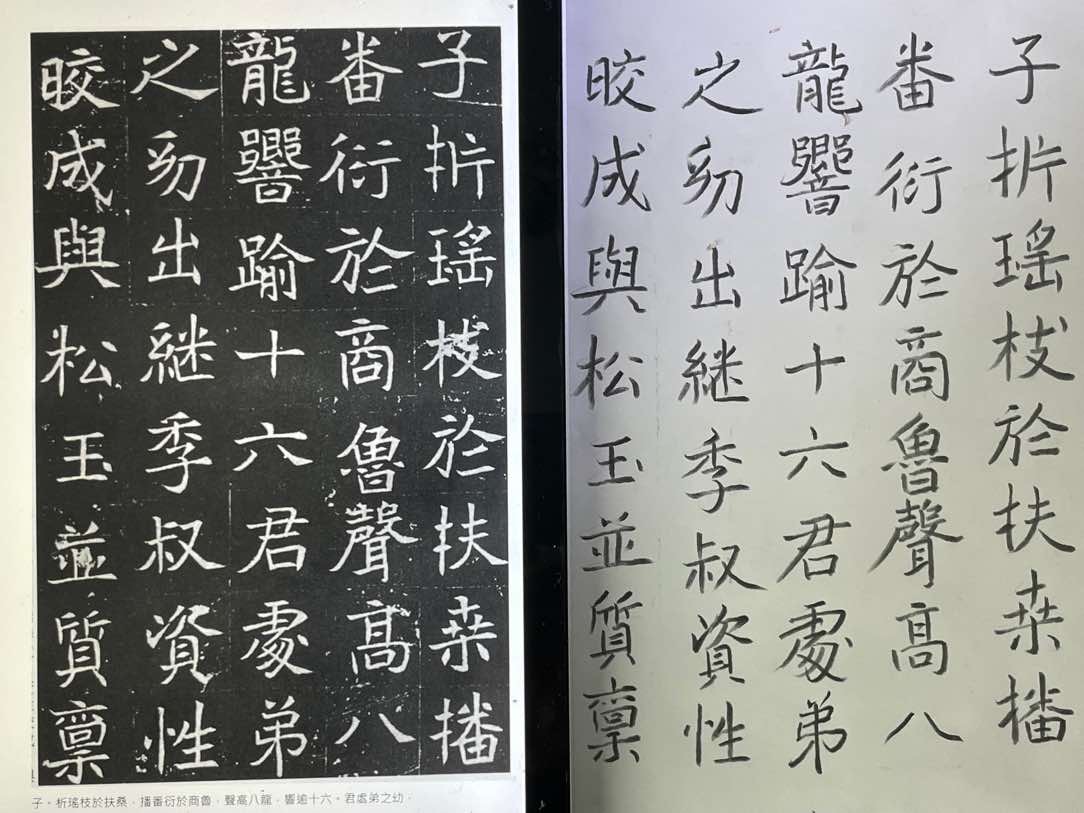 子析瑤枝於扶桒播
番衍於商魯聲髙八
龍響踰十六君處弟
之幼出継季叔資性
晈成與松玉並質稟
子。析瑤枝於扶桑,播蕃衍於商魯,聲高八龍,響逾十六。君處弟之幼,
子析瑤枝於扶桒播
番衍於商魯聲髙八
龍響踰十六君處弟
之幼出継季叔資性
晈成與松玉並質稟